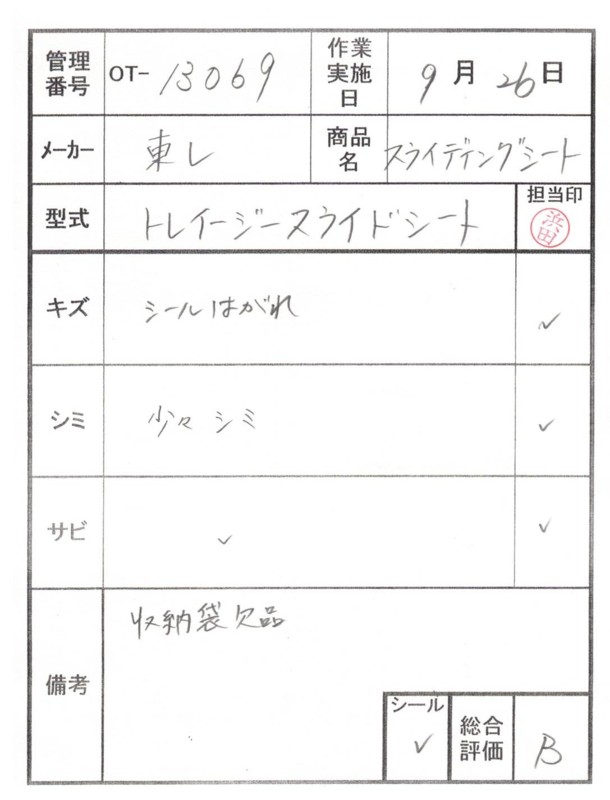 管理番号 OT-13069 作業実施日 9月26日
メーカー 東レ 商品名 スライディングシート
型式 トレイージースライドシート 担当印 浜田
キズ シールはがれ ✓
シミ 少々シミ ✓
サビ ✓ ✓
備考 収納袋欠品
シール ✓ 総合評価 B